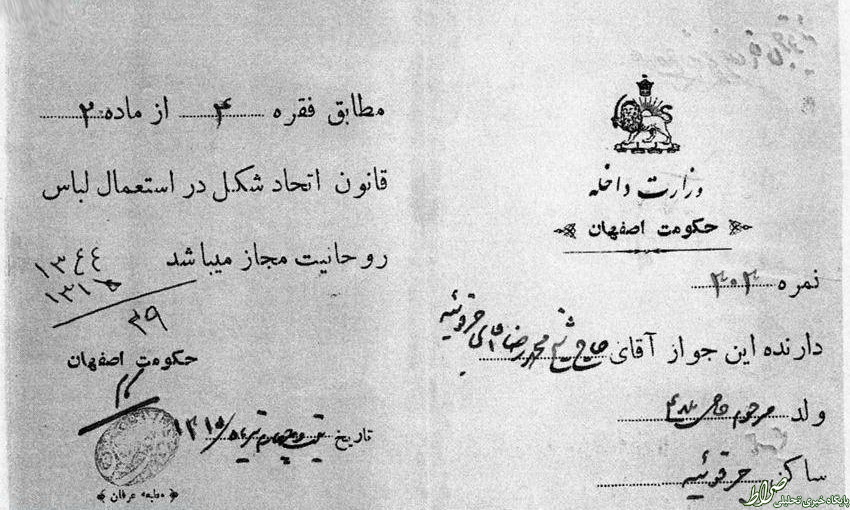 وزارت داخله
حکومت اصفهان
نمره ۳۰۲
دارنده این جواز آقای حاج شیخ محمد رضا آقای جرقوئیه
ولد مرحوم حاجی
ساکن جرقوئیه
مطابق فقره ۴ از ماده ۲
قانون اتحاد شکل در استعمال لباس
روحانیت مجاز میباشد
۱۳۴۴
۱۳۱۵
۲۹
حکومت اصفهان
تاریخ ۱۳۱۵
مطبعه عرفان
صراط
پایگاه خبری تحلیلی